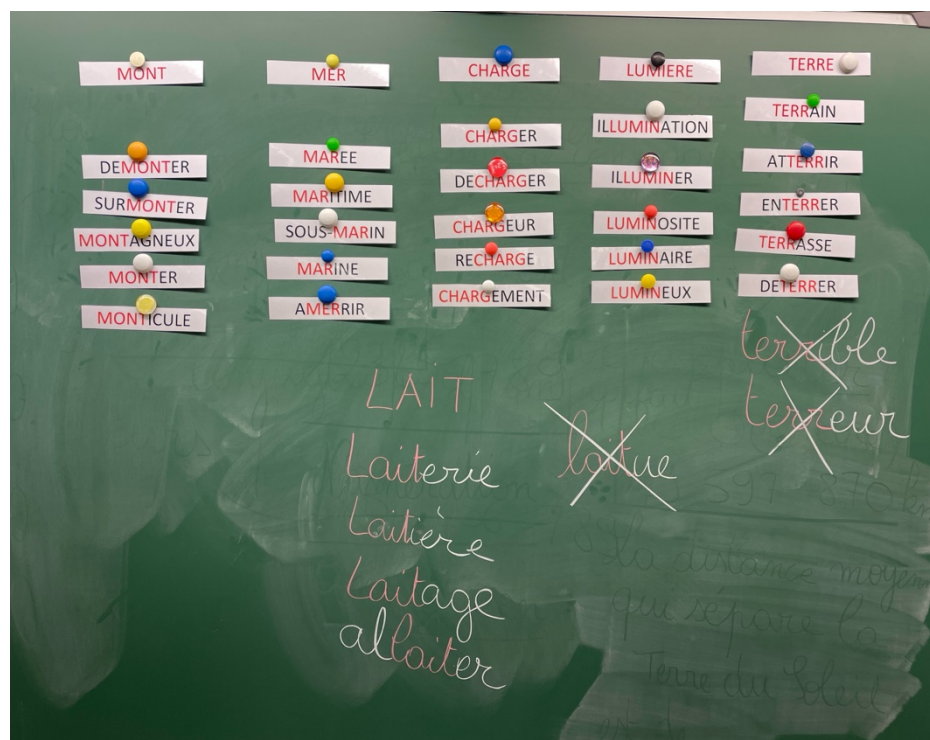 MONT
DEMONTER
SURMONTER
MONTAGNEUX
MONTER
MONTICULE
MER
MAREE
MARITIME
SOUS-MARIN
MARINE
AMERRIR
CHARGE
CHARGER
DECHARGER
CHARGEUR
RECHARGE
CHARGEMENT
LUMIERE
ILLUMINATION
ILLUMINER
LUMINOSITE
LUMINAIRE
LUMINEUX
TERRE
TERRAIN
ATTERRIR
ENTERRER
TERRASSE
DETERRER
terrible
terreur
LAIT
Laiterie
Laitière
Laitage
allaiter
laitue
la distance moyen
qui sépare la
Terre du Soleil